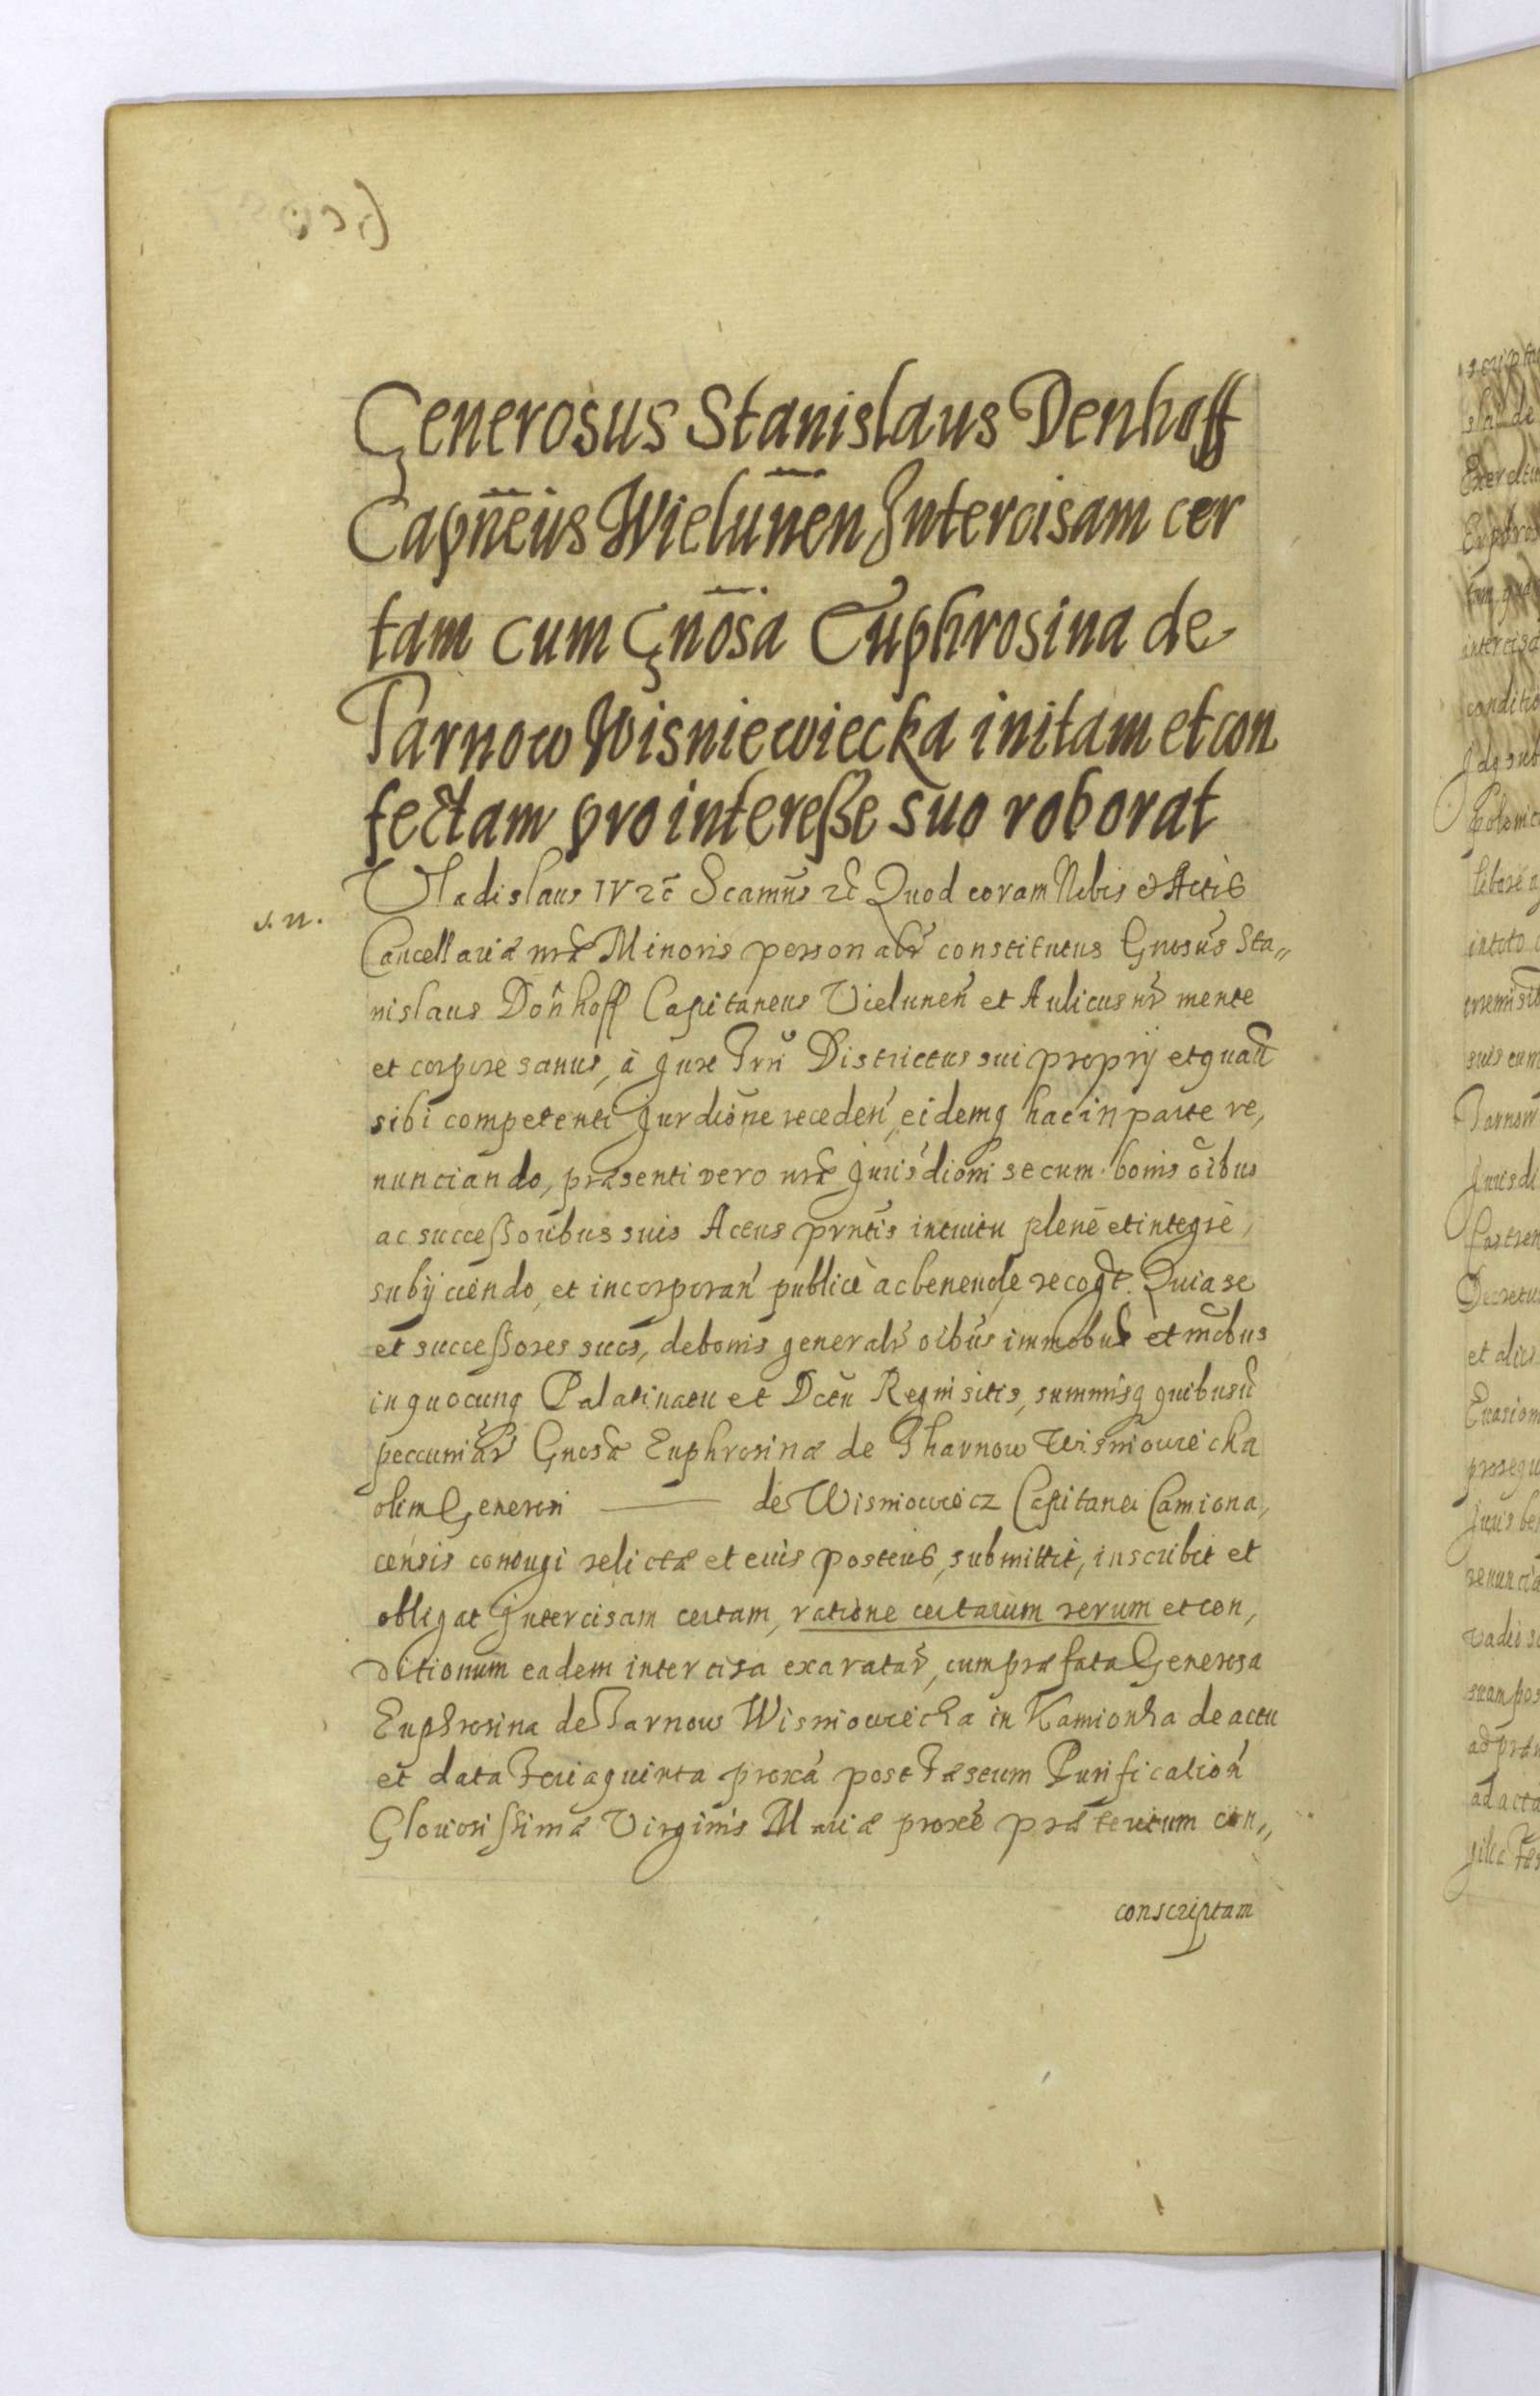 Generosus Stanislaus Denhoff
Capn̄eūs Wielun̄en Intercisam cer
tam cum Gn̄osa Euphrosina de
Tarnow Wisniewiecka initam et con
fectam pro intereße suo roborat
Vladislaus IV etc̄ Scamūs etc̄ Quod coram Nobis et Actis
s. n.
Cancellariæ nr̄æ Minoris personalr̄ constitutus Gnosūs Sta„
nislaus Dönhoff Capitaneus Vielunen̄ et Aulicus nr̄ mente
et corpore sanus, à Jure Districtus sui proprij et
sibi competenti Jurdiōne receden̄, eidemq hac in parte re,
nunciando, præsenti vero nr̄æ Jurisdioni se cum bonis oībus
ac succeßoribus suis Actus prntīs intuitu plenè et integrè,
subijciendo, et incorporan̄ publicè ac benevole recogt̄. Quia se
et succeßores suos, de bonis generalr̄ oibūs immobus̄ et mōbus
in quocunq Palatinatu et Dctū Regni sitis, summisq quibusū
peccuniar̄ Gnosæ Euphrosinæ de Tharnow Wisniowiecka
olim Generosi ——— de Wisniowiecz Capitanei Camiona,
censis coniugi relictæ et eius posteris, submittit, inscribit et
obligat Intercisam certam, ratione certarum rerum et con,
ditionum eadem intercisa exaratar̄, cum præfata Generosa
Euphrosina de Tarnow Wisniowiecka in Kamionka de actu
et data Feria quinta proxā post Fæstum Purification̄
Gloriosißimæ Virginis Mariæ proxē præteritum con„
conscriptam